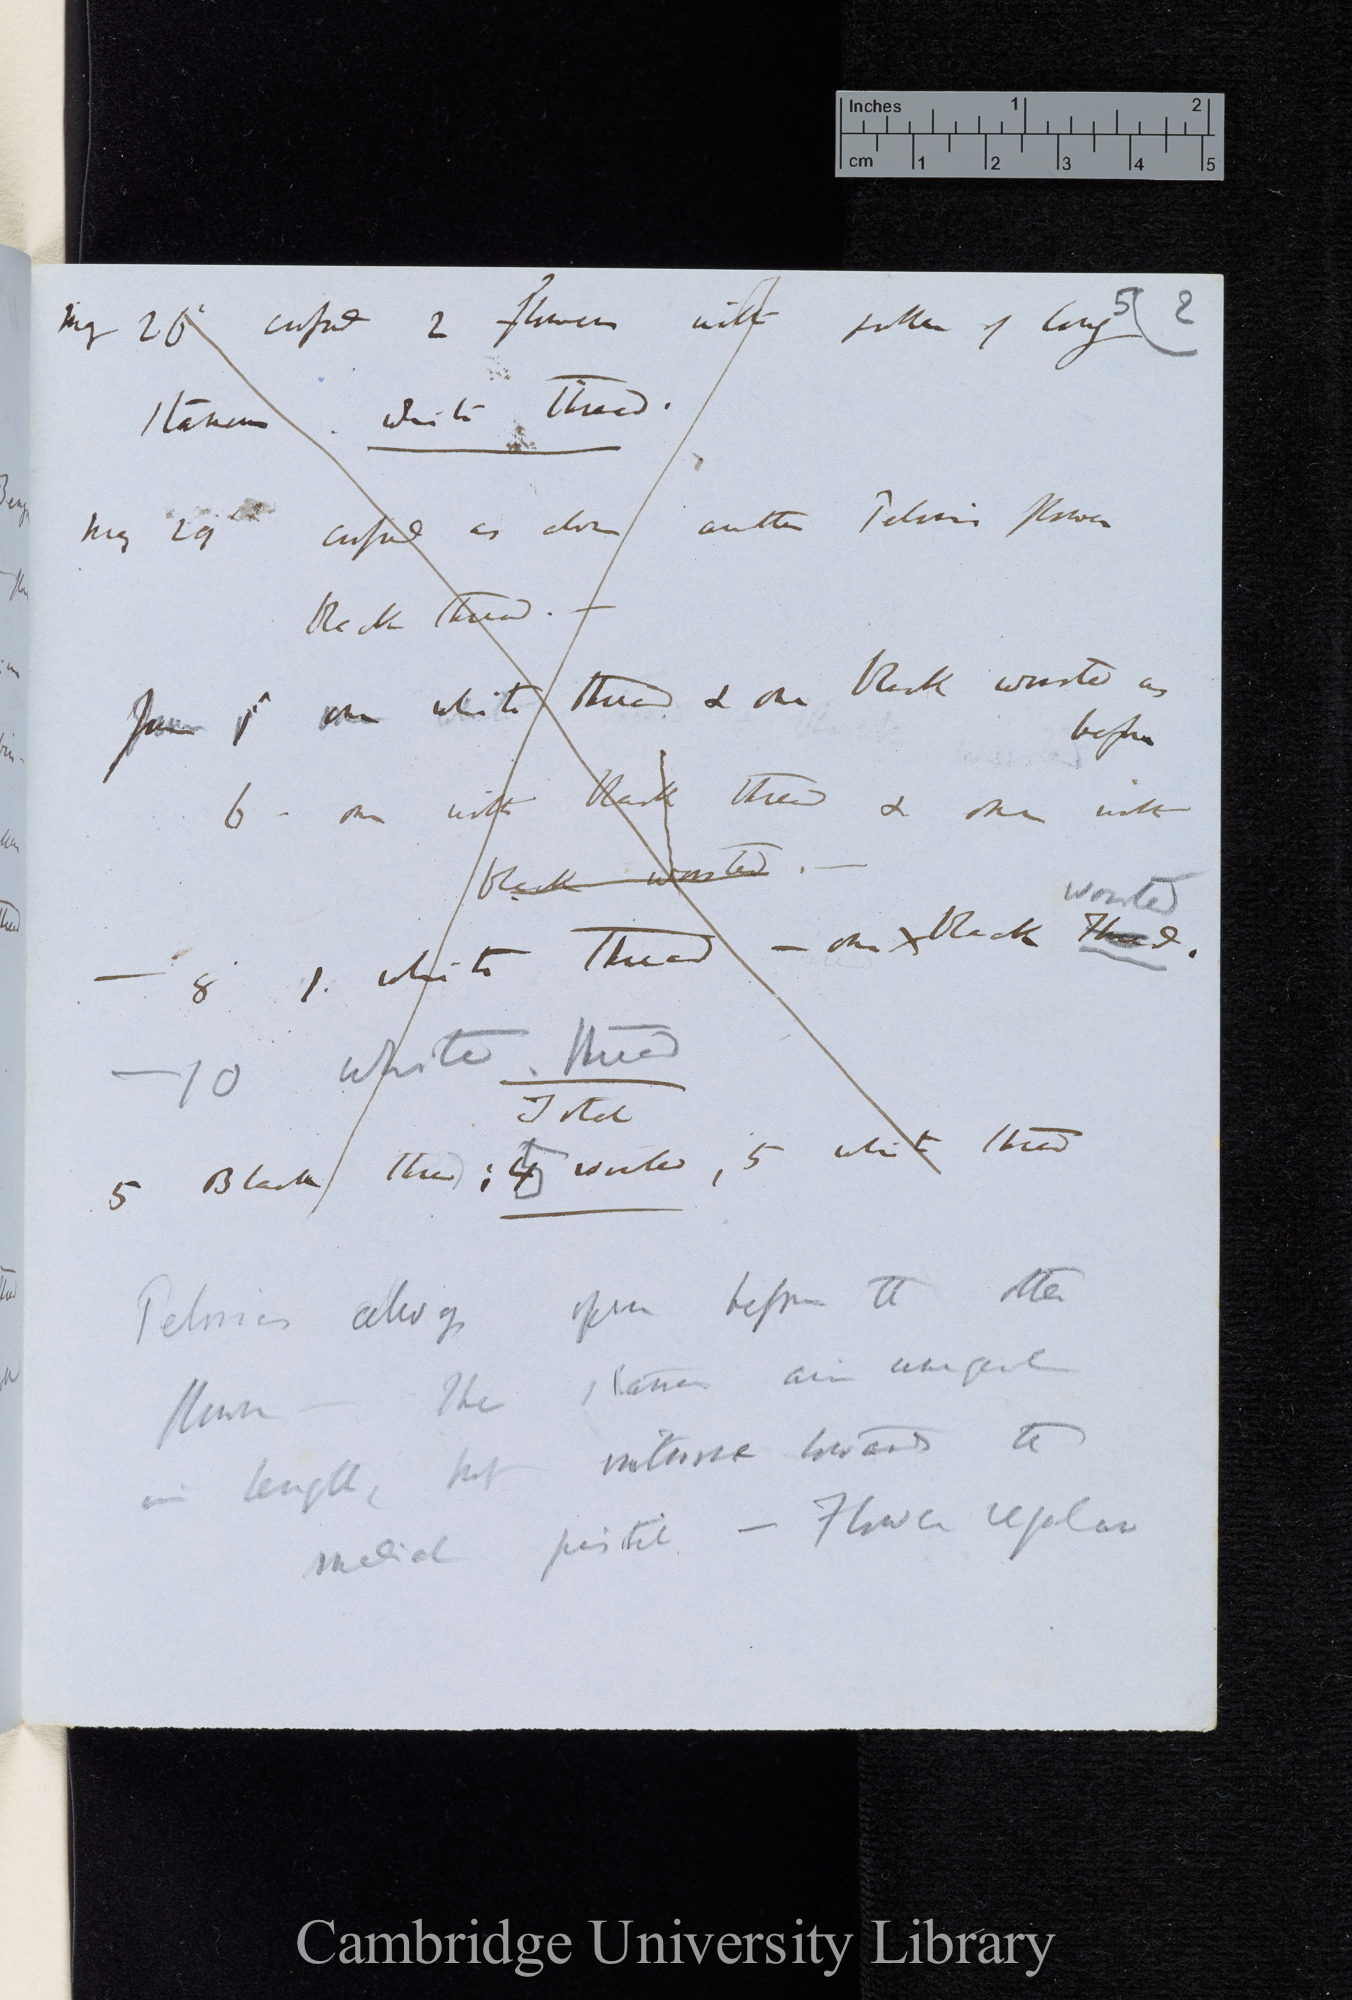 Inches 1 2
cm 1 2 3 4 5
52
May 26' crossed 2 flowers with pollen of long
stamens . white thread.
May 29th crossed as above another Peloric flower
black thread. —
June 1st one white thread & one black worsted as
before
6 - one with black thread & one with
black worsted. —
worsted
— 8 1. white thread — one black Thread.
— 10 white thread
Total
5 Black thread; worsted, 5 white thread
Pelorias always open before the other
flowers — The stamens are unequal
in length, but introrse towards the
medial pistil — Flower regular
Cambridge University Library